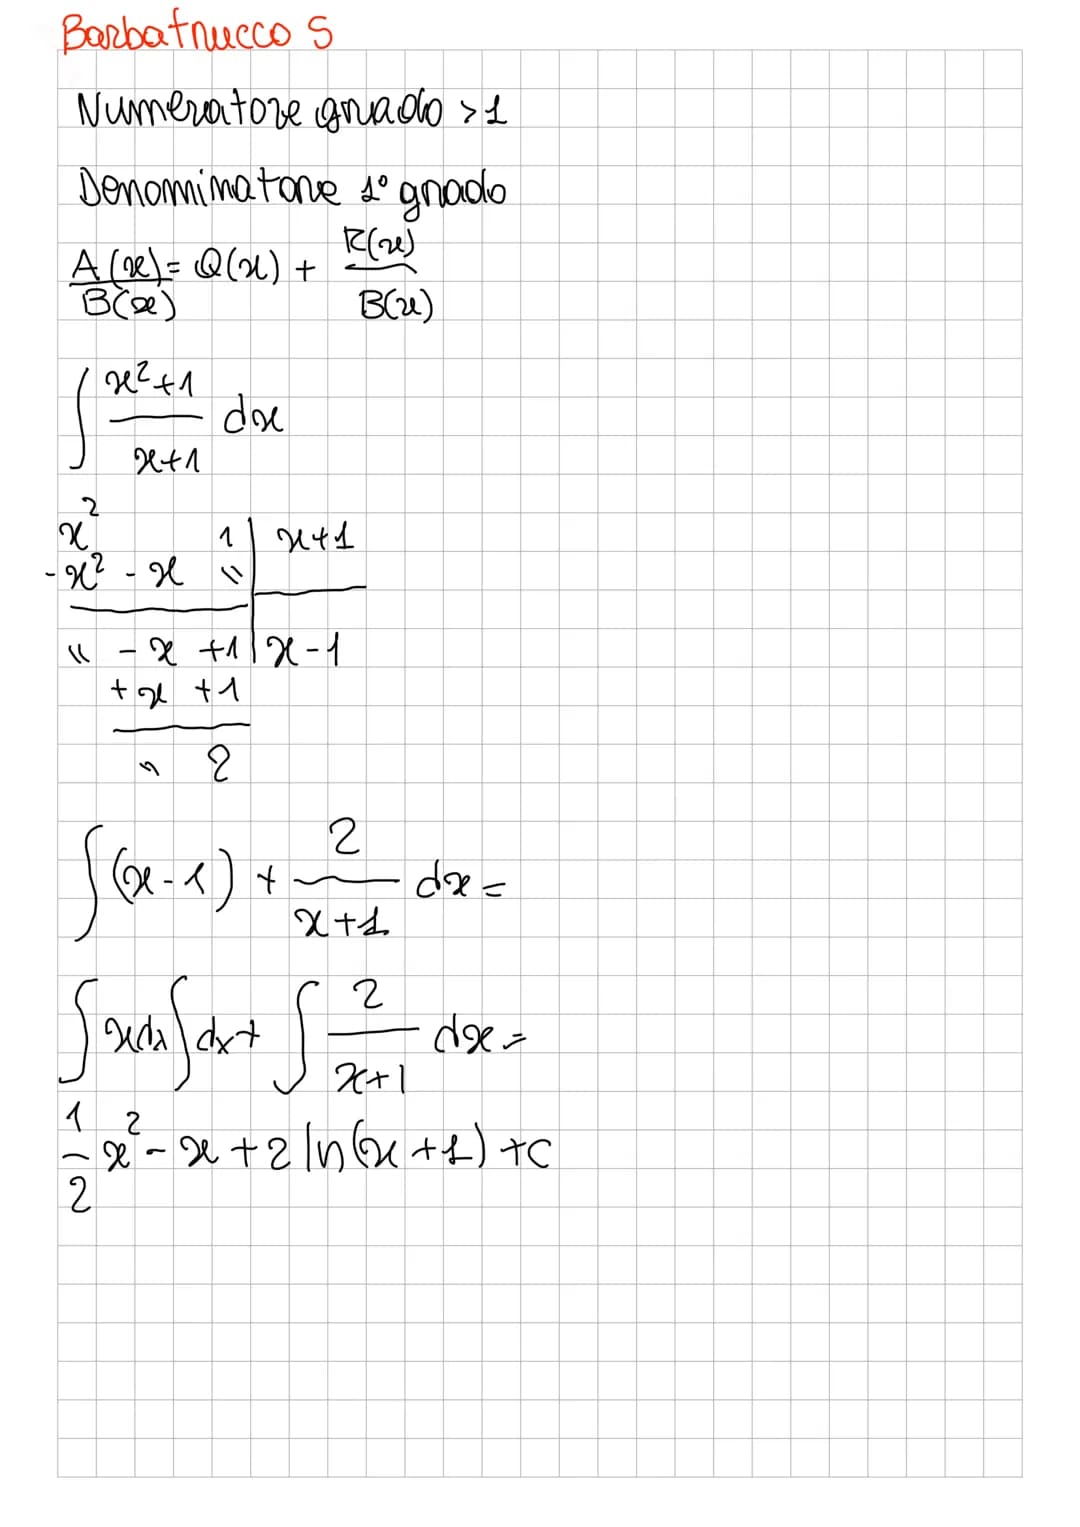 Barbatrucco 5
Numeratore grado > 1
Denominatore 1° grado
A(x)/B(x) = Q(x) + R(x)/B(x)
∫ (x²+1)/(x+1) dx
x² 1 | x+1
-x² - x " |
" - x +1 | x-1
+x +1
" 2
∫(x-1) + 2/(x+1) dx =
∫xdx∫dx+ ∫ 2/(x+1) dx =
1/2 x² - x + 2 ln(x+1) + c